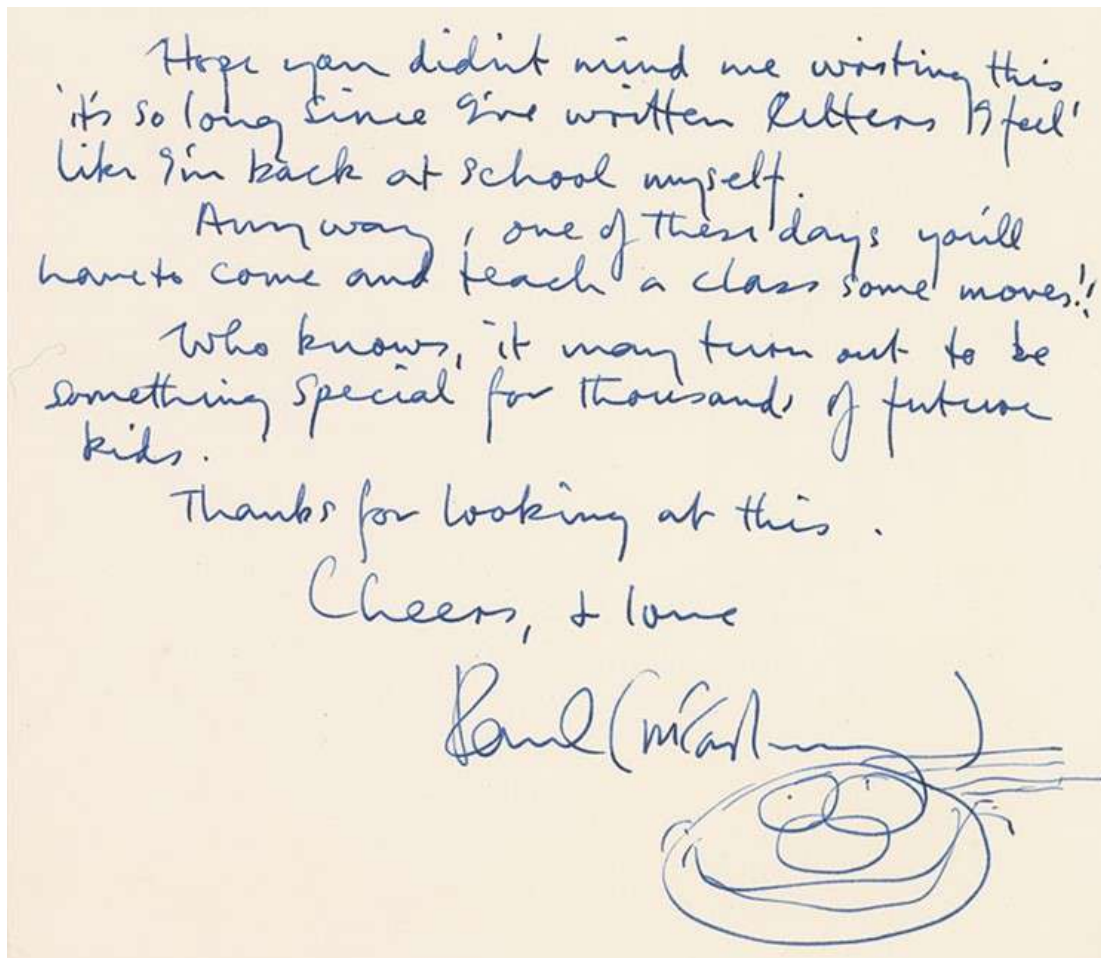 Hope you didn't mind me writing this
'it's so long since I've written letters I feel'
like I'm back at school myself.
Anyway, one of these days you'll
have to come and teach a class some moves!!
Who knows, it may turn out to be
something special for thousands of future
kids.
Thanks for looking at this.
Cheers, & love
Paul (McCartney)